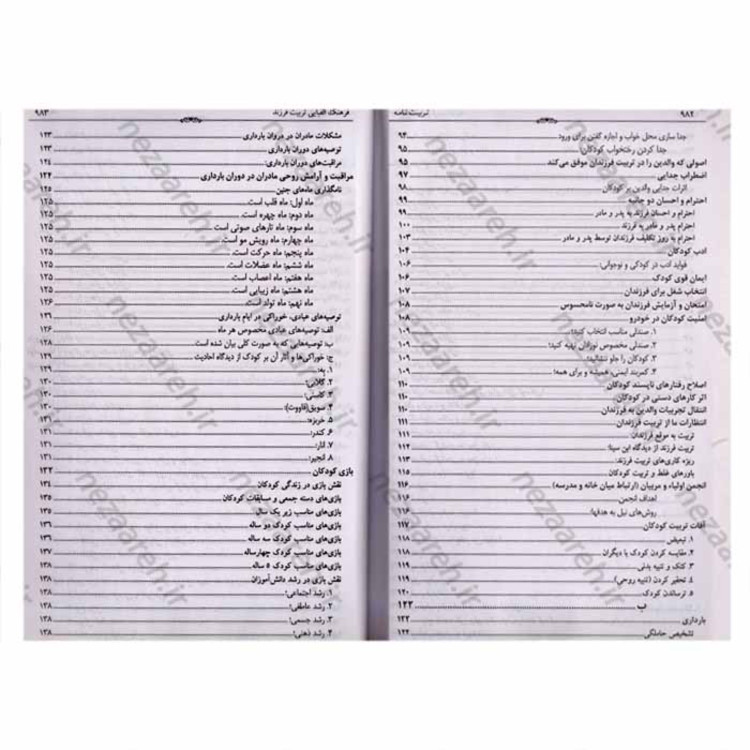 ۹۸۲ تربیت‌نامه
جدا سازی محل خواب و اجازه گفتن برای ورود ۹۴
جدا کردن رختخواب کودکان
اصولی که والدین را در تربیت فرزندان موفق می‌کند ۹۵
اضطراب جدایی ۹۷
اثرات جدایی والدین بر کودکان ۹۸
احترام و احسان دو جانبه ۹۹
احترام و احسان فرزند به پدر و مادر ۹۹
احترام پدر و مادر به فرزند ۱۰۰
احترام به روز تکلیف فرزندان توسط پدر و مادر ۱۰۳
ادب کودکان ۱۰۶
فواید ادب در کودکی و نوجوانی:
ایمان قوی کودک ۱۰۶
انتخاب شغل برای فرزندان ۱۰۷
امتحان و آزمایش فرزندان به صورت نامحسوس ۱۰۸
امنیت کودکان در خودرو ۱۰۸
۱. صندلی مناسب انتخاب کنید؛ ۱۰۹
۲. صندلی مخصوص نوزادان تهیه کنید؛ ۱۰۹
۳. کودکان را جلو ننشانید؛ ۱۰۹
۴. کمربند ایمنی، همیشه و برای همه؛ ۱۰۹
اصلاح رفتارهای ناپسند کودکان ۱۱۰
اثر کارهای دستی در کودکان ۱۱۰
انتقال تجربیات والدین به فرزندان ۱۱۰
انتظارات ما از فرزندان ۱۱۱
تربیت به موقع فرزندان ۱۱۱
تربیت فرزند از دیدگاه ابن سینا ۱۱۲
ریزه کاری‌های تربیت فرزند: ۱۱۳
باورهای غلط و تربیت کودکان ۱۱۵
انجمن اولیاء و مربیان (ارتباط میان خانه و مدرسه) ۱۱۶
اهداف انجمن ۱۱۶
روش‌های نیل به هدفها:
آفات تربیت کودکان ۱۱۷
۱. تبعیض
۲. مقایسه کردن کودک با دیگران ۱۱۸
۳. کتک و تنبیه بدنی ۱۱۸
۴. تحقیر کردن (تنبیه روحی) ۱۱۹
۵. ترساندن کودک ۱۲۰
ب ۱۲۲
بارداری ۱۲۲
تشخیص حاملگی ۱۲۲
فرهنگ الفبایی تربیت فرزند ۹۸۳
مشکلات مادران در دروان بارداری ۱۲۳
توصیه‌های دوران بارداری ۱۲۳
مراقبت‌های دوران بارداری: ۱۲۴
مراقبت و آرامش روحی مادران در دوران بارداری ۱۲۴
نامگذاری ماه‌های جنین
ماه اول: ماه قلب است. ۱۲۵
ماه دوم: ماه چهره است. ۱۲۵
ماه سوم: ماه تارهای صوتی است. ۱۲۵
ماه چهارم: ماه رویش مو است. ۱۲۵
ماه پنجم: ماه حرکت است. ۱۲۵
ماه ششم: ماه عضلات است. ۱۲۵
ماه هفتم: ماه اعصاب است. ۱۲۵
ماه هشتم: ماه زیبایی است. ۱۲۵
ماه نهم: ماه تولد است. ۱۲۶
توصیه‌های عبادی، خوراکی در ایام بارداری
الف: توصیه‌های عبادی مخصوص هر ماه ۱۲۶
ب: توصیه‌هایی که به صورت کلی بیان شده است ۱۲۸
ج: خوراکی‌ها و آثار آن بر کودک از دیدگاه احادیث ۱۲۹
۱. به: ۱۲۹
۲. گلابی: ۱۳۰
۳. کاسنی: ۱۳۰
۴. سویق(قاووت): ۱۳۰
۵. خربزه: ۱۳۰
۶. کندر: ۱۳۱
۷. انار: ۱۳۱
۸. انجیر: ۱۳۱
بازی کودکان ۱۳۲
نقش بازی در زندگی کودکان
بازی‌های دسته جمعی و مسابقات کودکان ۱۳۵
بازی‌های مناسب زیر یک سال ۱۳۵
بازی‌های مناسب کودک دو ساله
بازی‌های مناسب کودک سه ساله
بازی‌های مناسب کودک چهارساله ۱۳۷
بازی‌های مناسب کودک ۵ ساله ۱۳۸
نقش بازی در رشد دانش‌آموزان ۱۳۸
۱. رشد اجتماعی؛
۲. رشد عاطفی؛ ۱۳۸
۳. رشد جسمی؛ ۱۳۸
۴. رشد ذهنی؛ ۱۳۸
nezaareh.ir